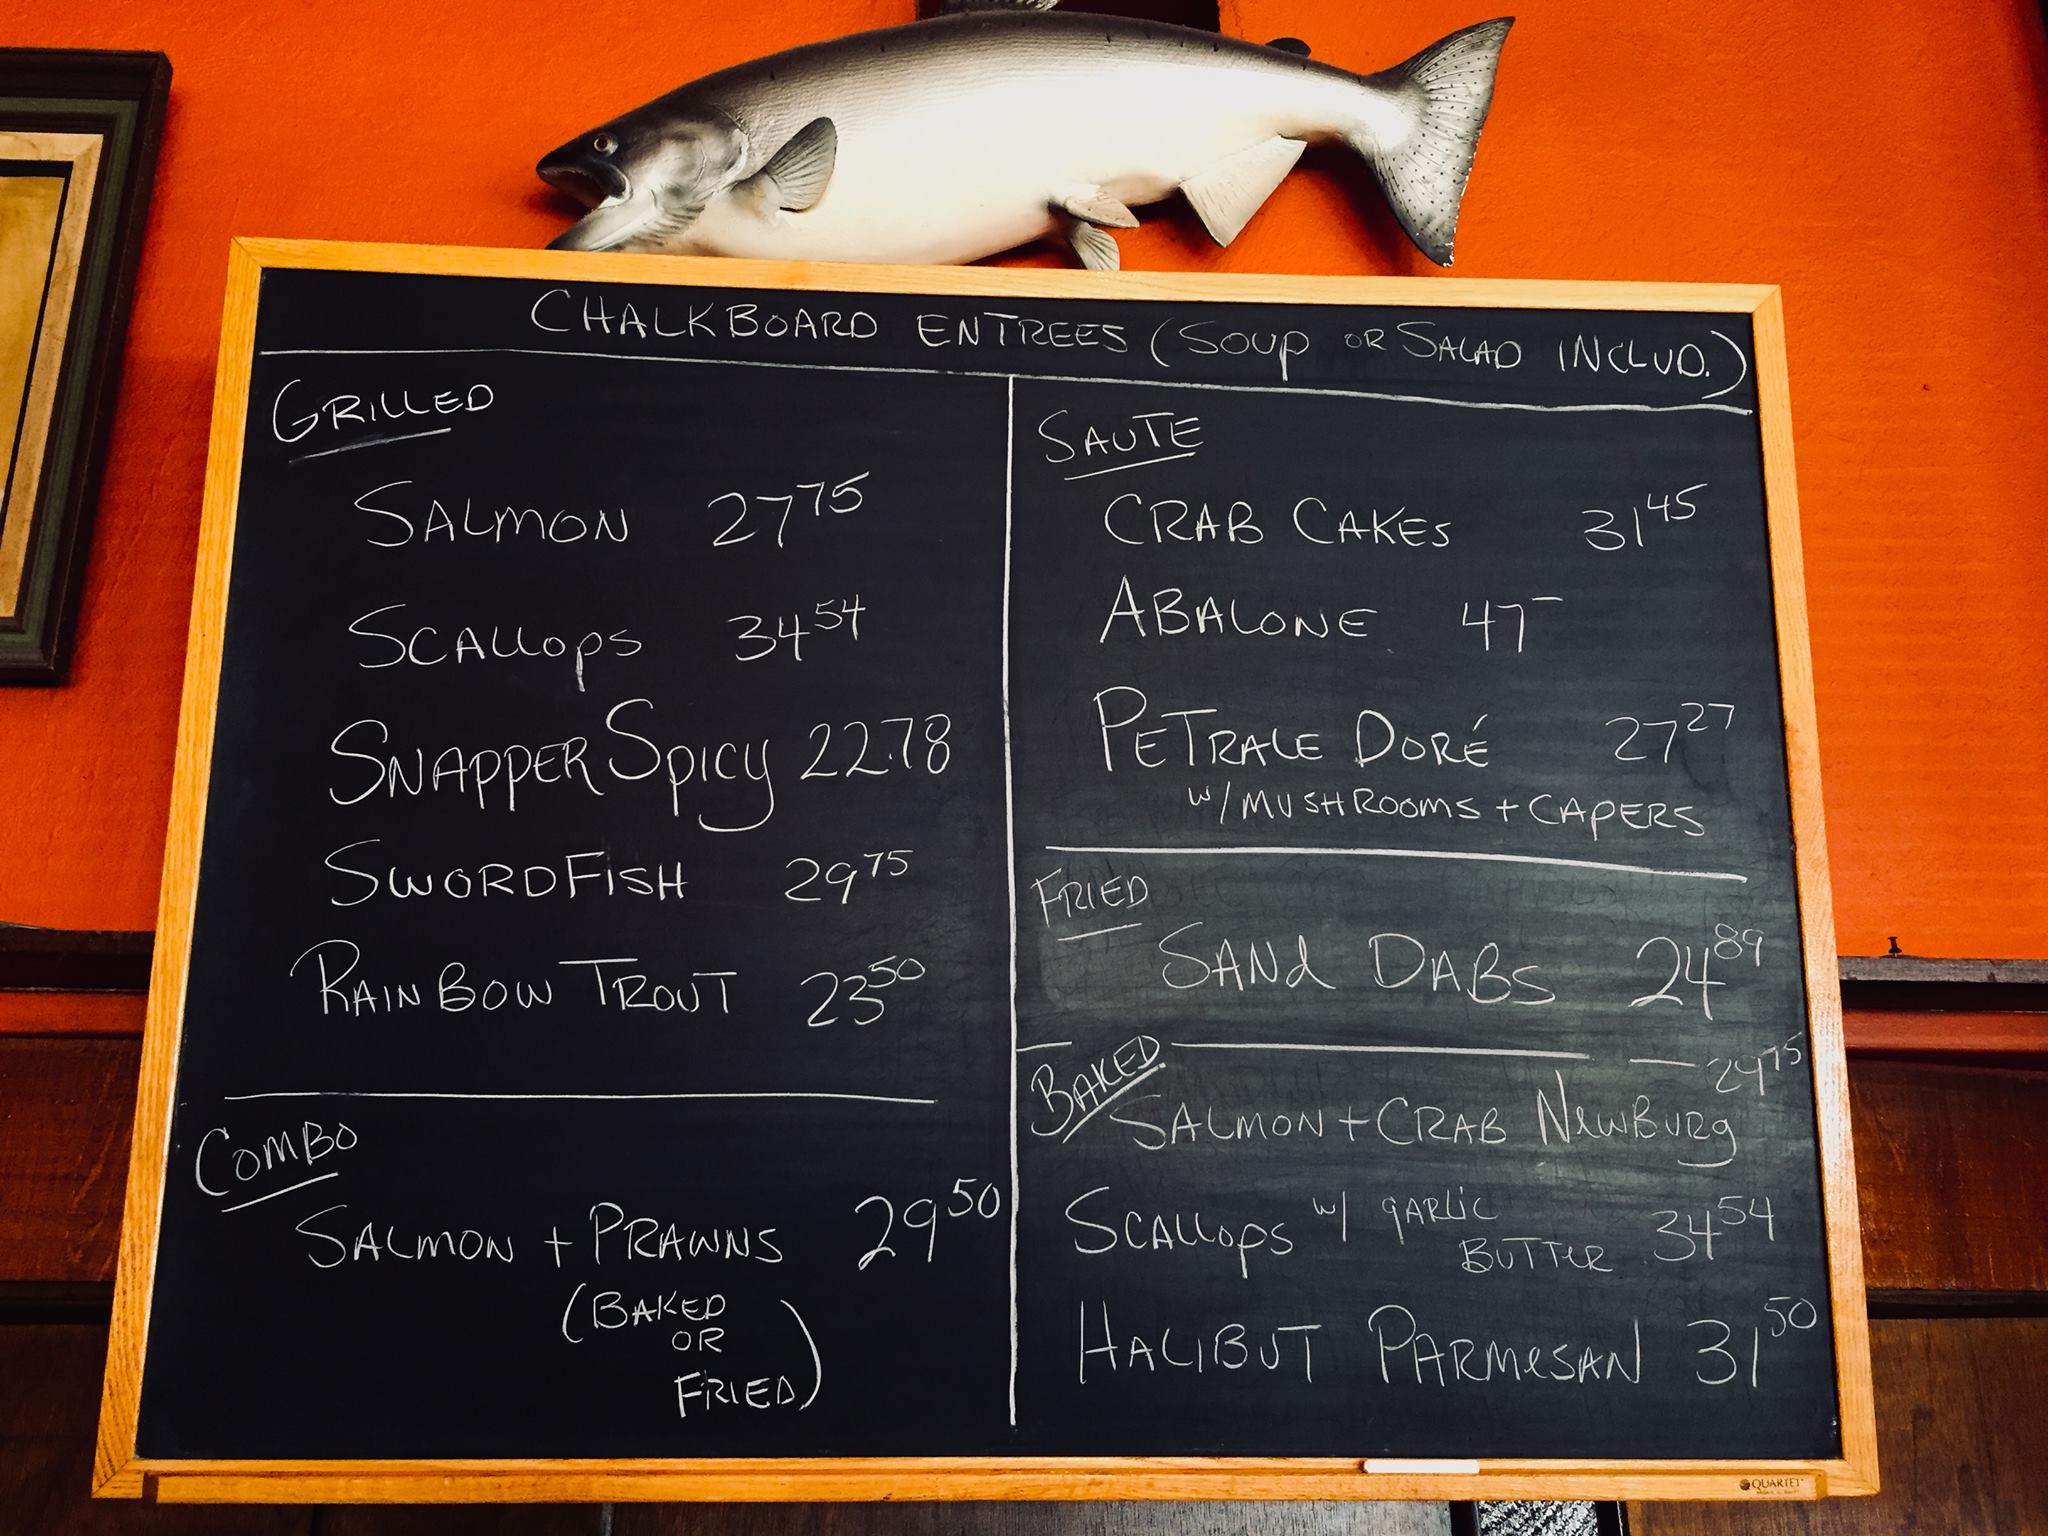 CHALKBOARD ENTREES (SOUP OR SALAD INCLUD.)
GRILLED
SALMON 27 75
SCALLOPS 34 54
SNAPPER SPICY 22.78
SWORDFISH 29 75
RAINBOW TROUT 23 50
COMBO
SALMON + PRAWNS 29 50
(BAKED
OR
FRIED)
SAUTE
CRAB CAKES 31 45
ABALONE 47 -
PETRALE DORÉ 27 27
W/ MUSHROOMS + CAPERS
FRIED
SAND DABS 24 89
BAKED
29 75
SALMON + CRAB NEWBURG
SCALLOPS W/ GARLIC
BUTTER 34 54
HALIBUT PARMESAN 31 50
QUARTET